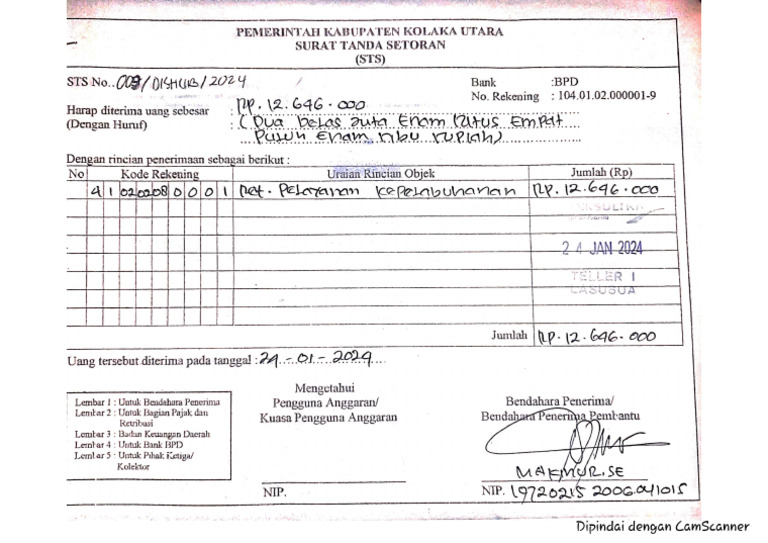 PEMERINTAH KABUPATEN KOLAKA UTARA
SURAT TANDA SETORAN
(STS)
STS No..009/DISHUB/2024
Bank :BPD
No. Rekening : 104.01.02.000001-9
Harap diterima uang sebesar : Rp. 12.646.000
(Dengan Huruf) : (Dua belas Juta Enam Ratus Empat
Puluh Enam ribu rupiah)
Dengan rincian penerimaan sebagai berikut :
No Kode Rekening Uraian Rincian Objek Jumlah (Rp)
4 1 02 02 08 0 0 0 1 Ret. Pelayanan Kepelabuhanan Rp. 12.646.000
24 JAN 2024
TELLER 1
LASUSUA
Jumlah Rp. 12.646.000
Uang tersebut diterima pada tanggal : 24-01-2024
Lembar 1 : Untuk Bendahara Penerima
Lembar 2 : Untuk Bagian Pajak dan
Retribusi
Lembar 3 : Badan Keuangan Daerah
Lembar 4 : Untuk Bank BPD
Lembar 5 : Untuk Pihak Ketiga/
Kolektor
Mengetahui
Pengguna Anggaran/
Kuasa Pengguna Anggaran
NIP.
Bendahara Penerima/
Bendahara Penerima Pembantu
MAKMUR.SE
NIP. 19720215 2006041015
Dipindai dengan CamScanner